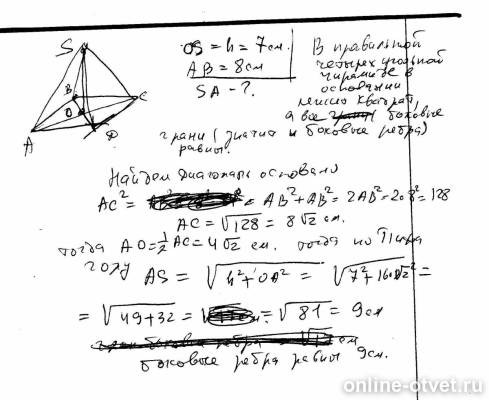 S
B
C
O
A
D
OS = h = 7 см.
AB = 8 см
SA - ?
В правильной
четырех угольной
пирамиде в
основании
лежит квадрат,
а все боковые
грани (значит и боковые ребра)
равны.
Найдем диагональ основано
AC² = AB² + AB² = 2AB² = 2·8² = 128
AC = √128 = 8√2 см.
тогда AO = ½ AC = 4√2 см. тогда по Пифа
гору AS = √h² + OA² = √7² + 16·√2² =
= √49+32 = = √81 = 9 см
боковые ребра равны 9см.
online-otvet.ru